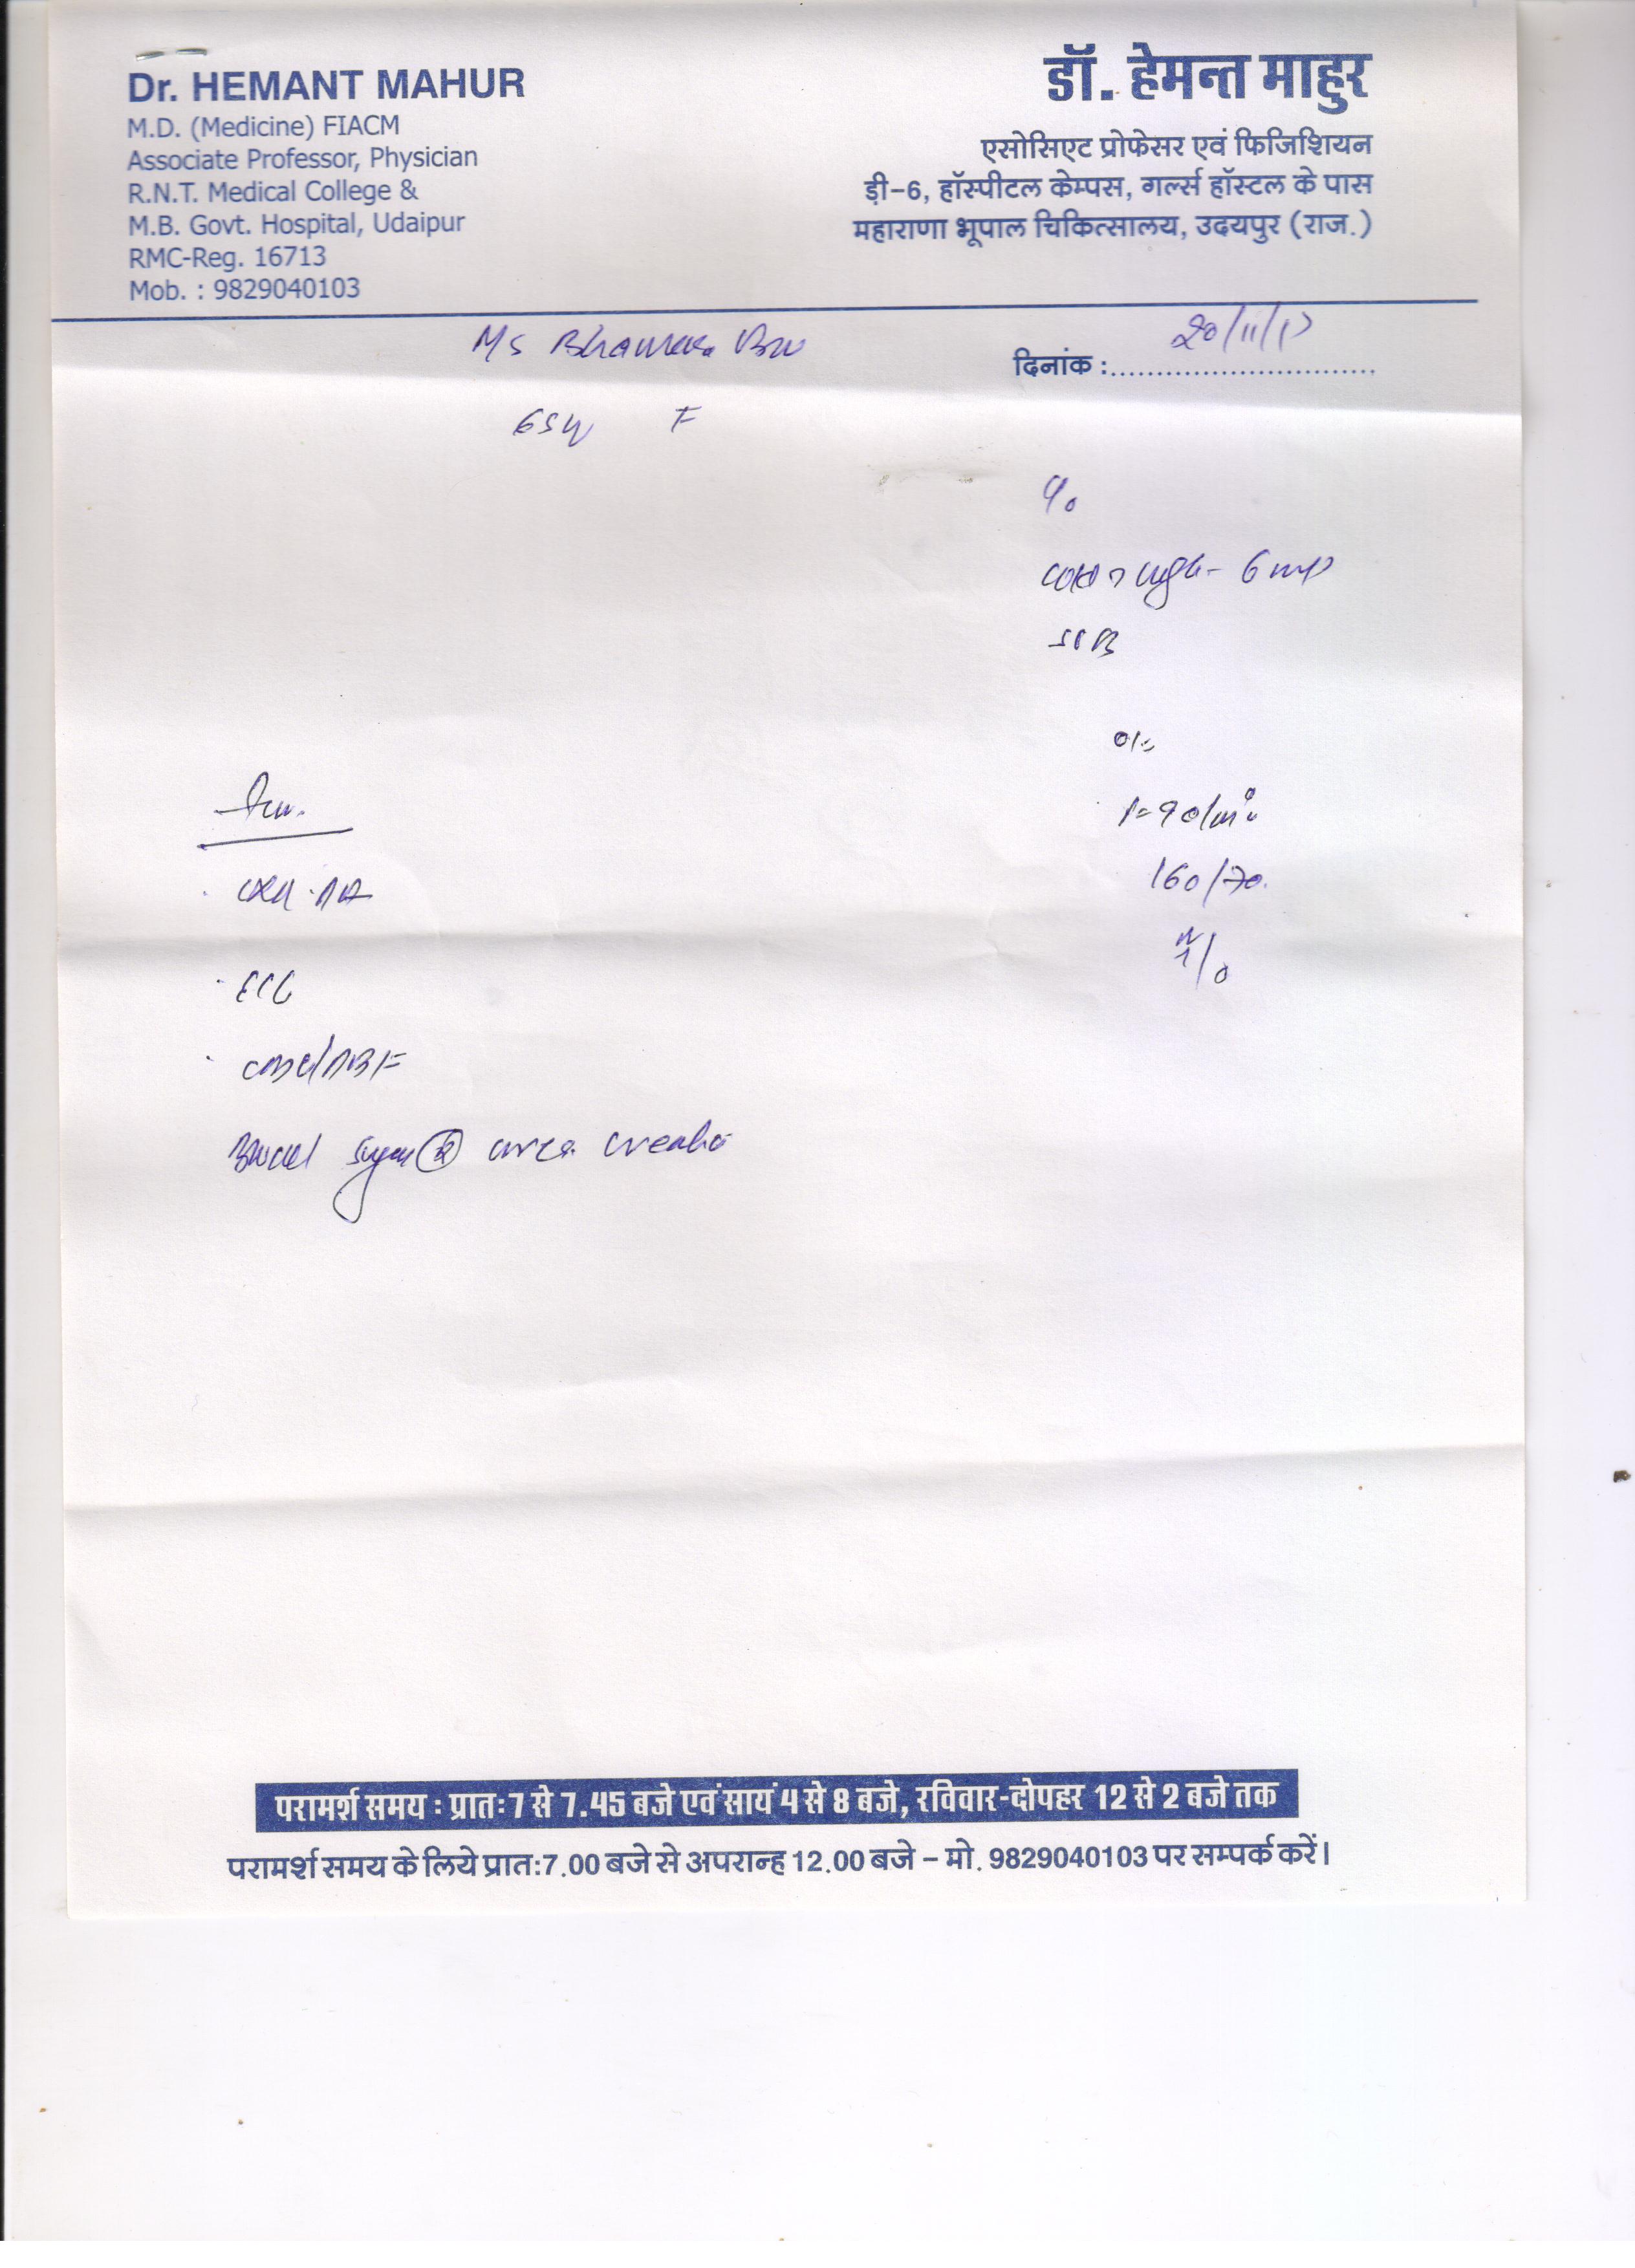 Dr. HEMANT MAHUR
M.D. (Medicine) FIACM
Associate Professor, Physician
R.N.T. Medical College &
M.B. Govt. Hospital, Udaipur
RMC-Reg. 16713
Mob. : 9829040103
डॉ. हेमन्त माहुर
एसोसिएट प्रोफेसर एवं फिजिशियन
ड़ी-6, हॉस्पीटल केम्पस, गर्ल्स हॉस्टल के पास
महाराणा भूपाल चिकित्सालय, उदयपुर (राज.)
Ms
दिनांक :.............................. 20/11/17
65y F
SOB
O/E
P=90/min
160/70.
CXR PA
ECG
CBC/PBF
Blood Sugar R urea creatin
परामर्श समय : प्रातः7 से 7.45 बजे एवं सायं 4 से 8 बजे, रविवार-दोपहर 12 से 2 बजे तक
परामर्श समय के लिये प्रातः7.00 बजे से अपरान्ह 12.00 बजे – मो. 9829040103 पर सम्पर्क करें।